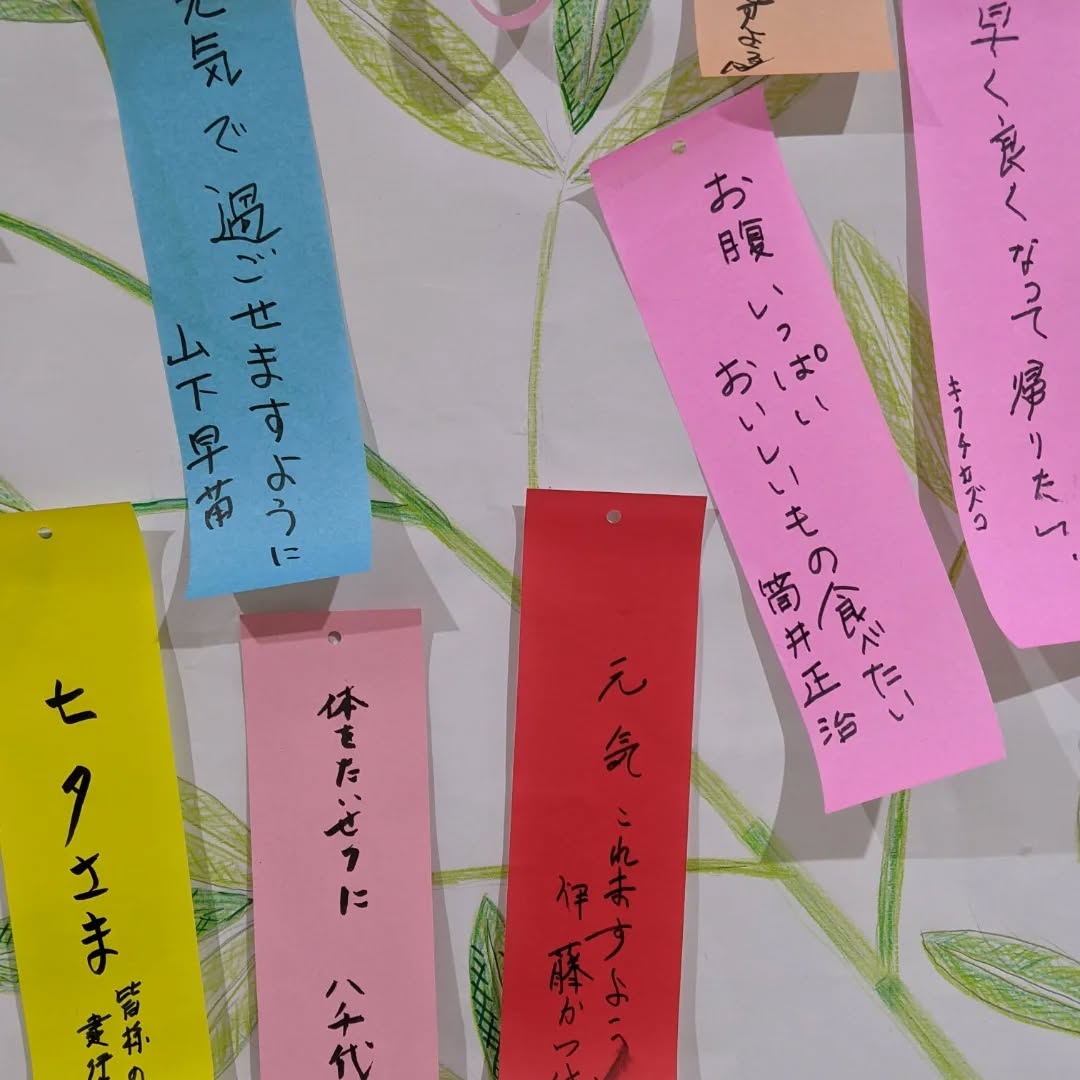 元気で過ごせますように
山下早苗
早く良くなって帰りたい.
キフチカズコ
お腹いっぱい
おいしいもの食べたい
筒井正治
七夕さま
皆様の
体をたいせつに
八千代
元気これますよう
伊藤かつ